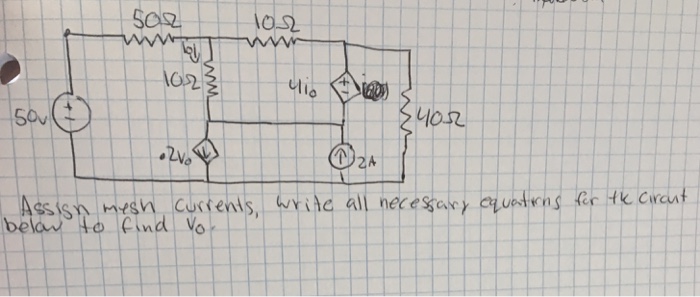 50Ω 10Ω
10Ω
4i₀
50v
40Ω
.2V₀
2A
Assign mesh currents, write all necessary equations for the circut
below to find V₀.